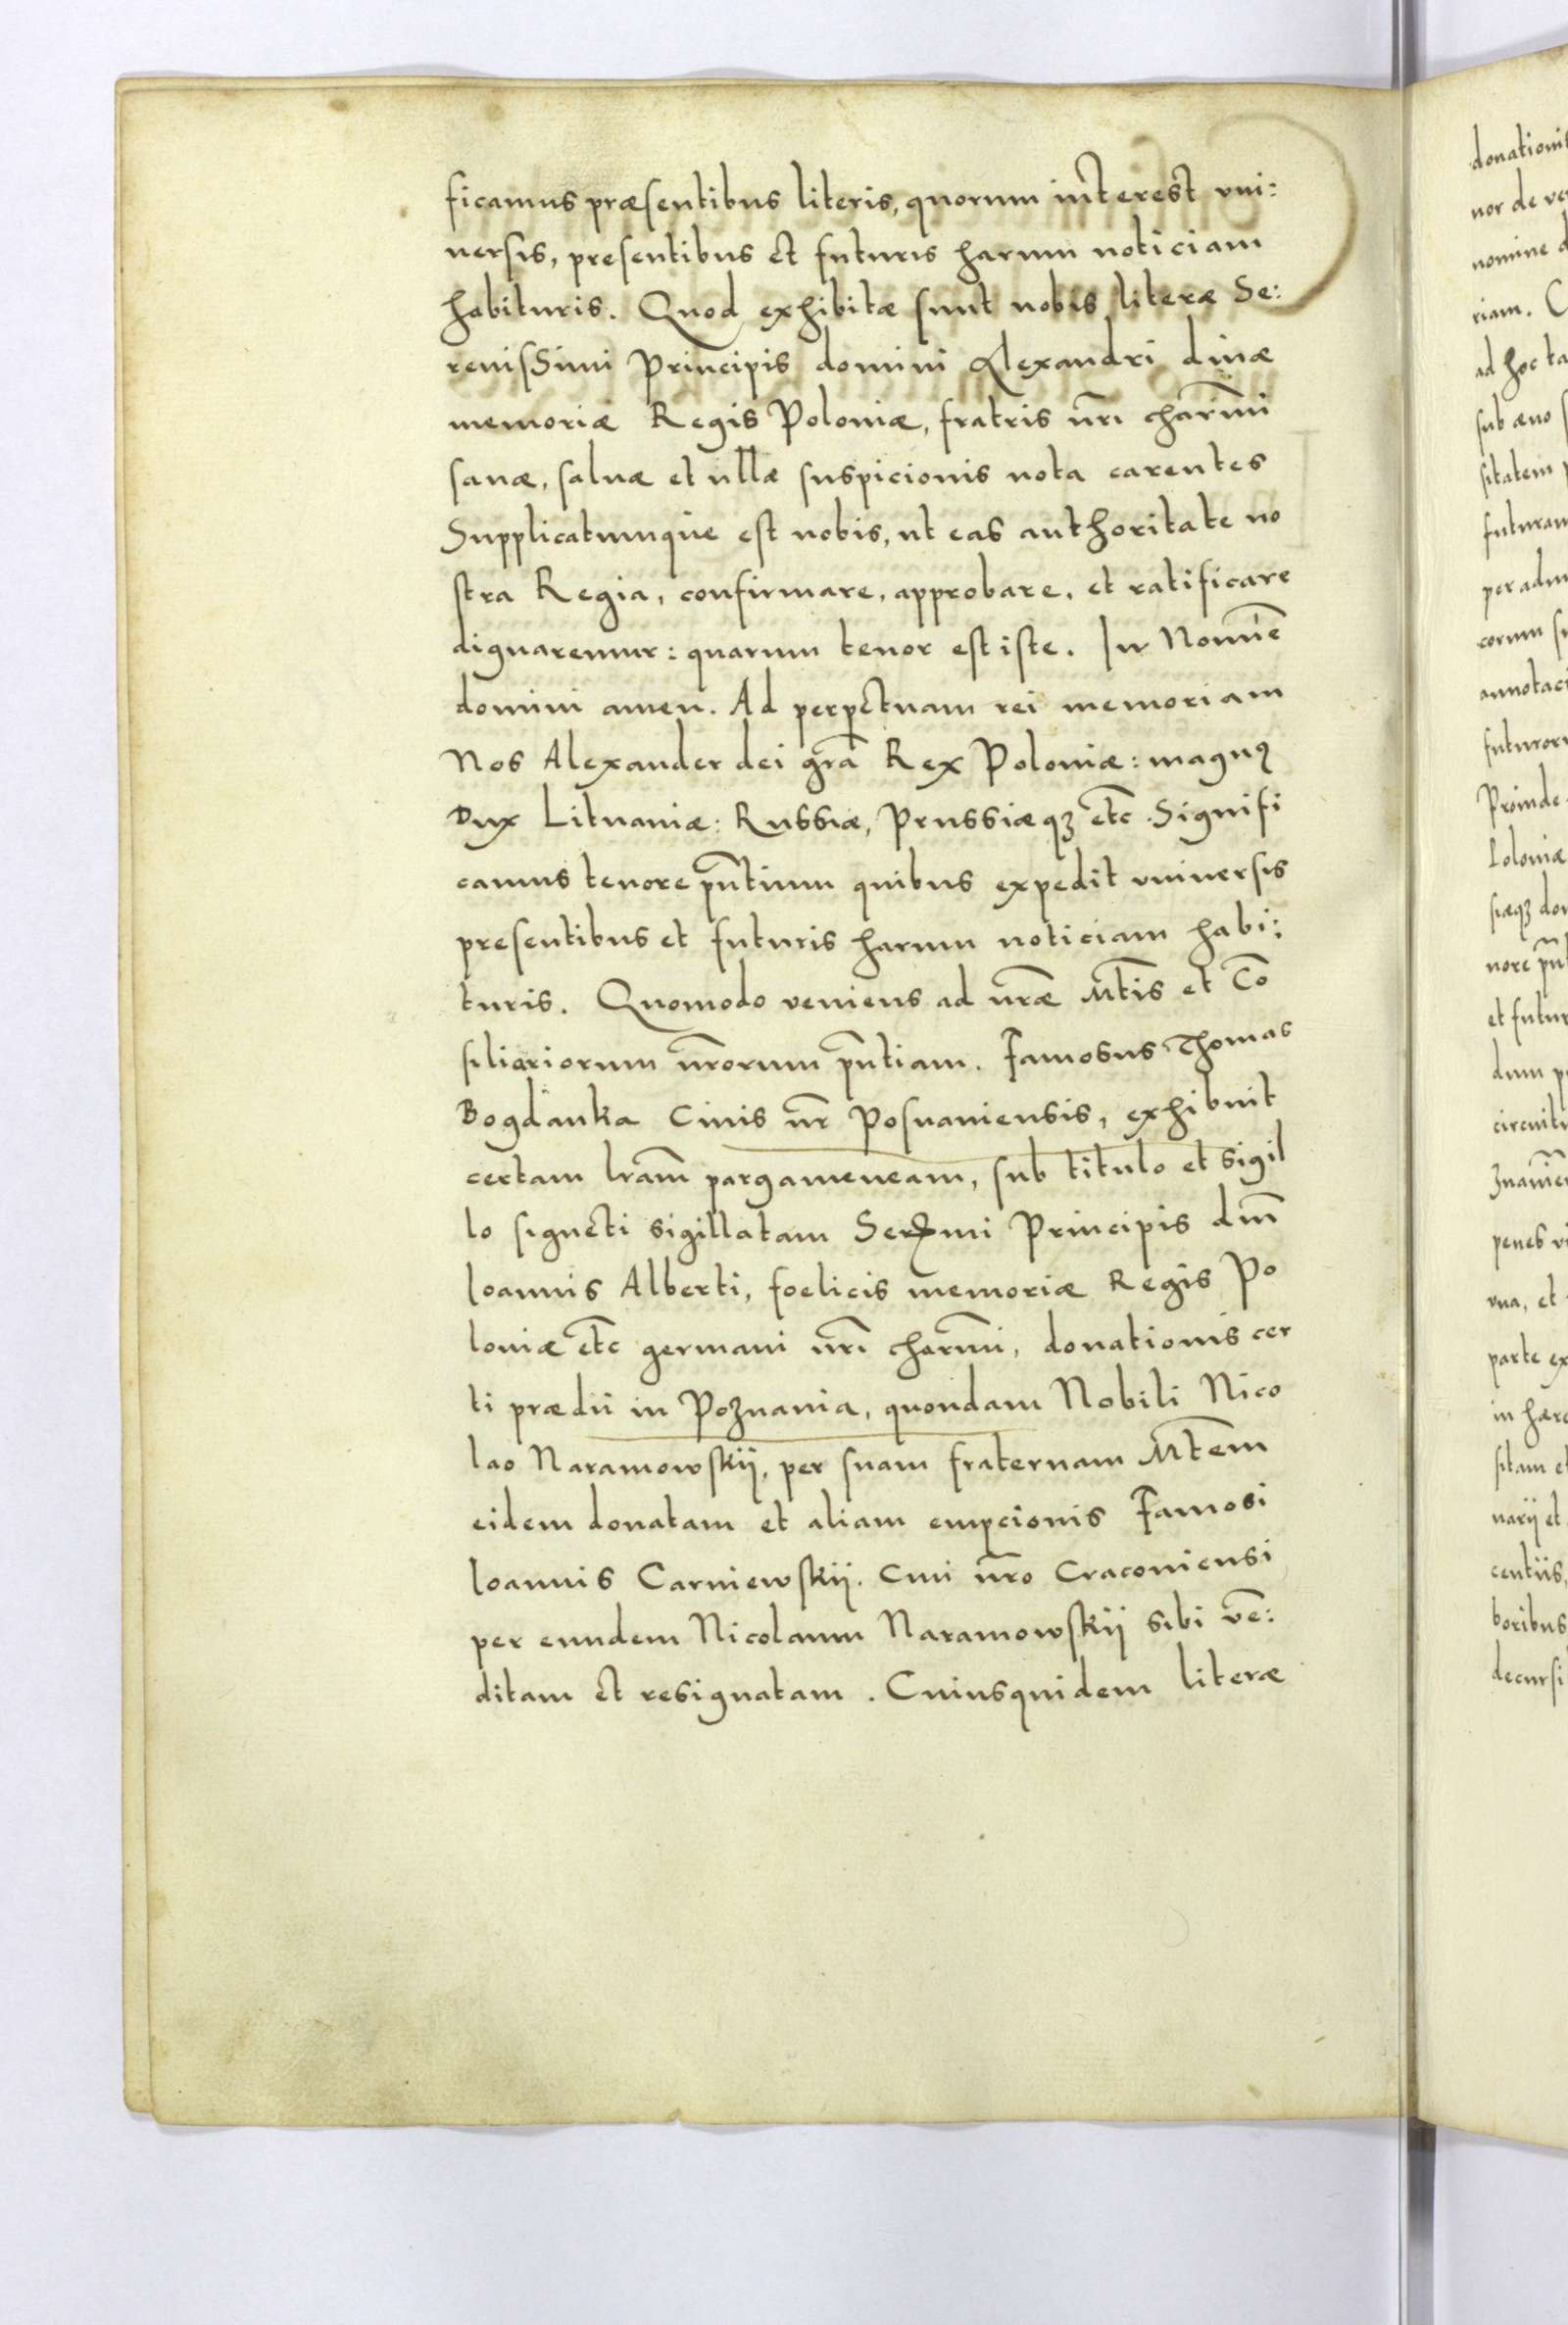 ficamus præsentibus literis, quorum interest vni:
uersis, presentibus et futuris harum noticiam
habituris. Quod exhibitæ sunt nobis literæ Se:
renissimi Principis domini Alexandri diuæ
memoriæ Regis Poloniæ, fratris nr̄i char̄mi
sanæ, saluæ et ullæ suspicionis nota carentes
Supplicatumque est nobis, ut eas authoritate no
stra Regia, confirmare, approbare, et ratificare
dignaremur: quarum tenor est iste. In Nomīe
domini amen. Ad perpetuam rei memoriam
Nos Alexander dei gr̄a Rex Poloniæ: magnꝰ
Dux Lituaniæ: Russiæ, Prussiæqꝫ etc̄. Signifi
camus tenore pn̄tium quibus expedit vniuersis
presentibus et futuris harum noticiam habi:
turis. Quomodo veniens ad nr̄æ Mt̄is et Cō
siliariorum nr̄orum pn̄tiam. Famosus Thomas
Bogdanka Ciuis nr̄ Posnaniensis, exhibuit
certam lr̄am pargameneam, sub titulo et sigil
lo signeti sigillatam Serꝫmi Principis dm̄
Ioannis Alberti, foelicis memoriæ Regis Po
loniæ etc̄ germani nr̄i char̄mi, donationis cer
ti prædii in Poznania, quondam Nobili Nico
lao Naramowskij, per suam fraternam Mt̄em
eidem donatam et aliam empcionis Famosi
Ioannis Carniewskij. Ciui nr̄o Cracouiensi
per eundem Nicolaum Naramowskij sibi vē:
ditam et resignatam. Cuiusquidem literæ
donationis
nor de
nomine
riam.
ad hoc
sub æuo
sitatem
futuram
per
eorum
futuror
Proinde
Loloniæ
siæqꝫ
nore pn̄
et futur
dum
circuitu
penes
vna, et
parte ex
in
sitam et
narij et
centiis,
boribus
decursi